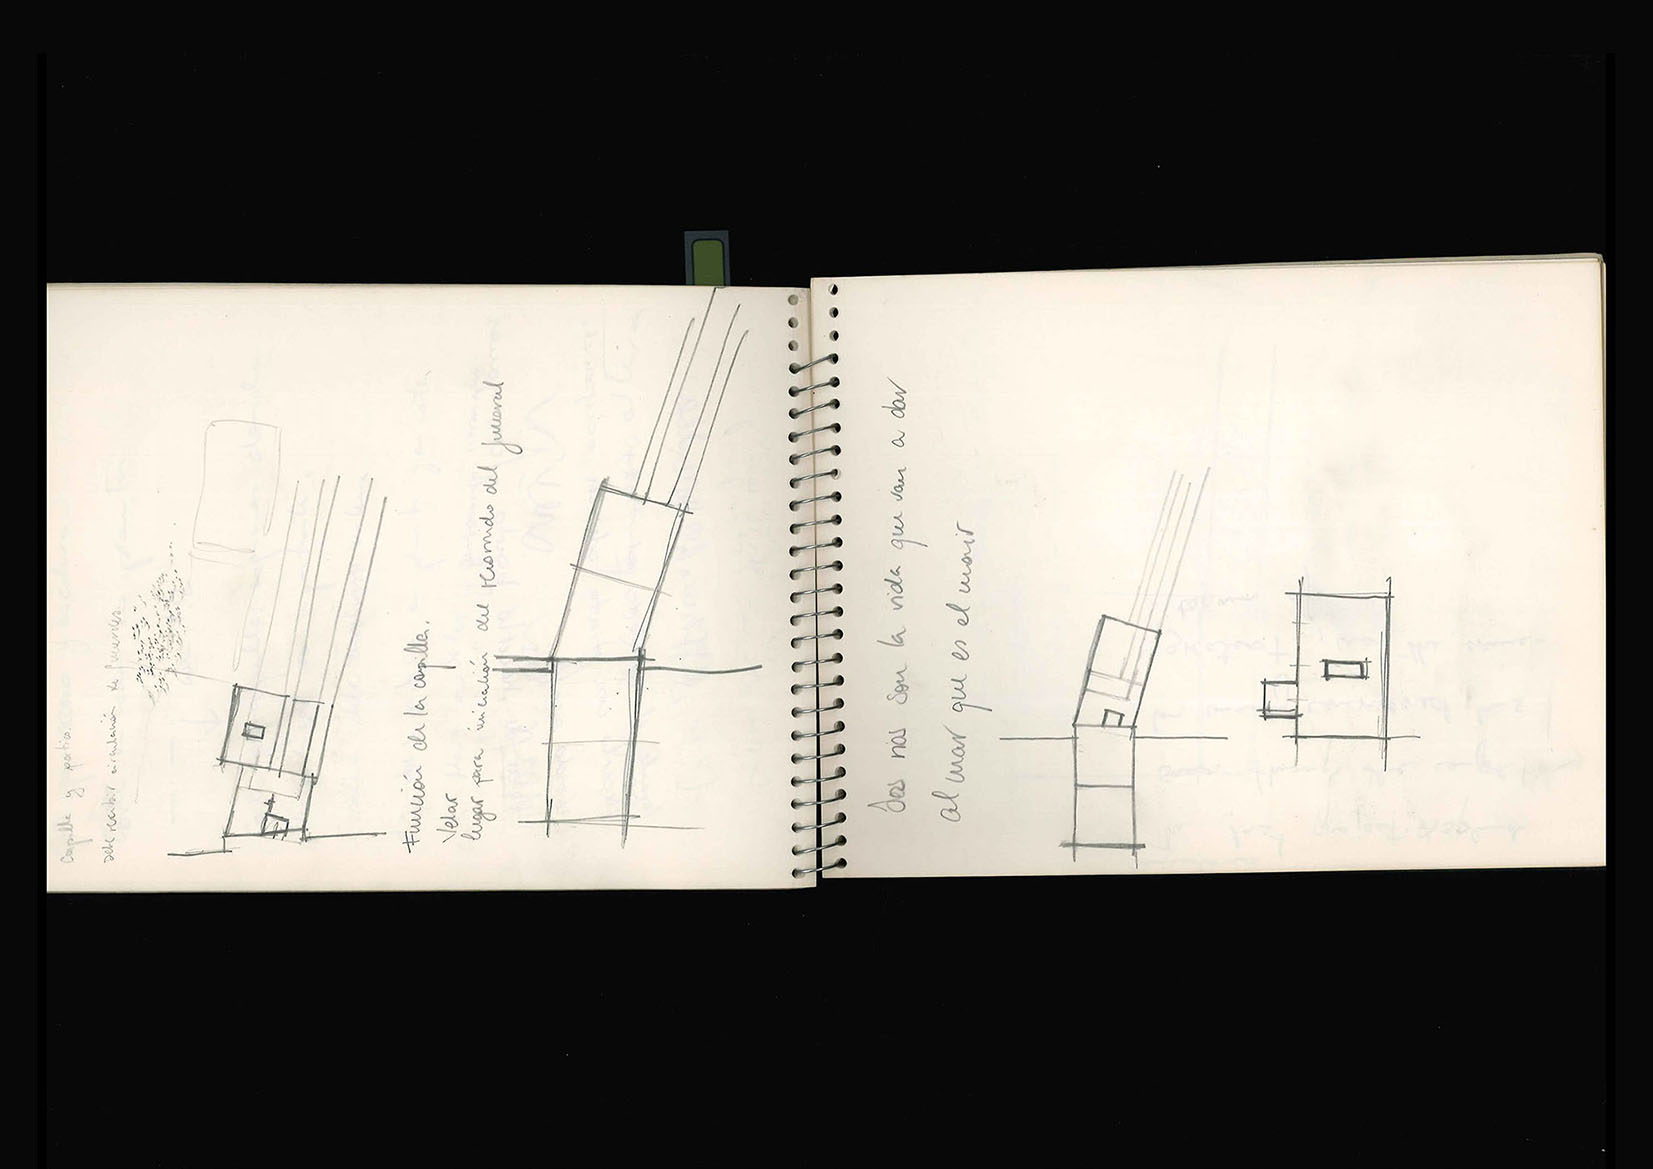 Capilla y patio.
debe recibir circulación de funerales.
Función de la capilla.
Velar
lugar para iniciación del recorrido del funeral
los rios son la vida que van a dar
al mar que es el morir